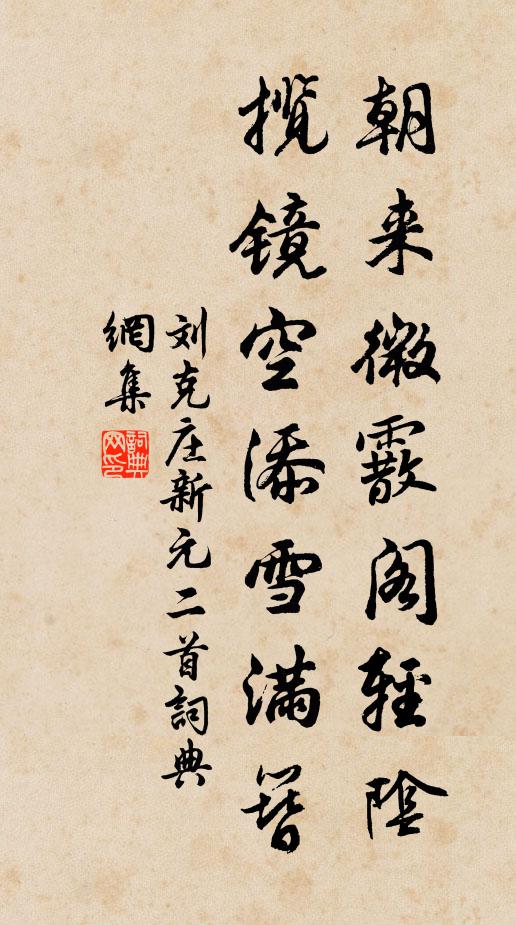 朝来微霰阁輕陰
揽镜空添雪满簪
刘克庄新元二首詞典
網集
詞典网印